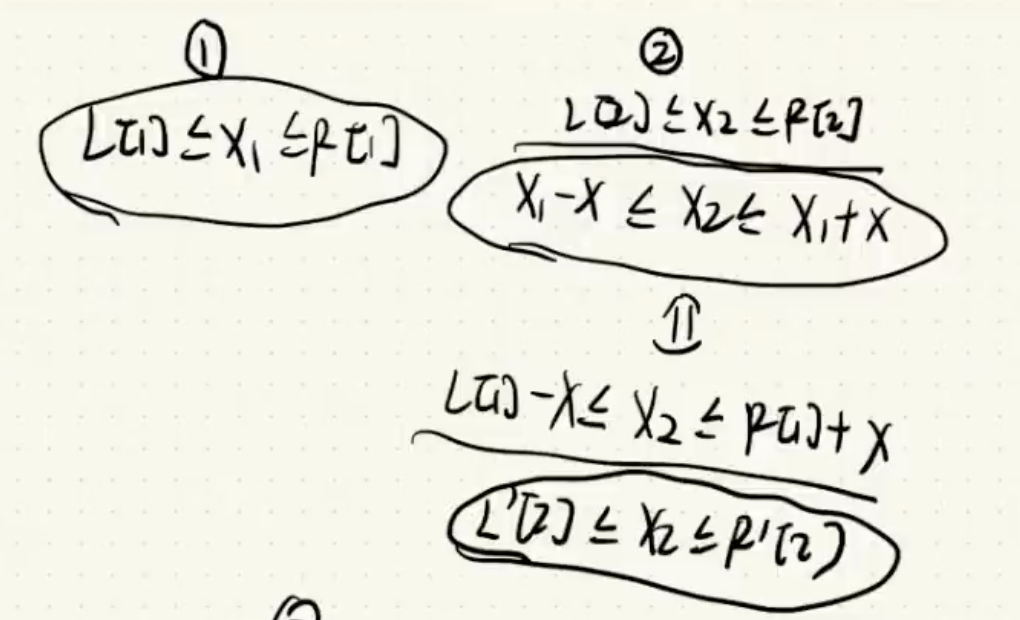 ①
L[1] ≤ X₁ ≤ R[1]
②
L[2] ≤ X₂ ≤ R[2]
X₁ - X ≤ X₂ ≤ X₁ + X
⇓
L[1] - X ≤ X₂ ≤ R[1] + X
L'[2] ≤ X₂ ≤ R'[2]